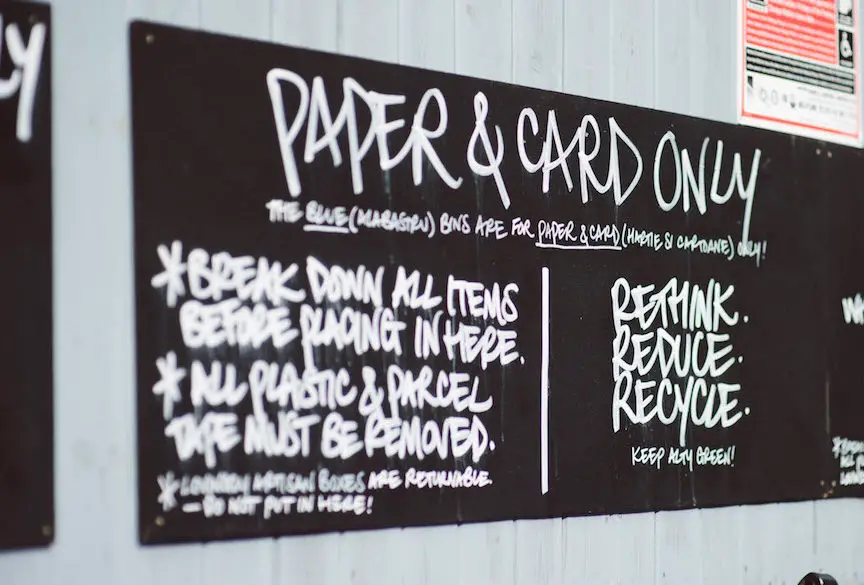 PAPER & CARD ONLY
THE BLUE (ALABASTRU) BINS ARE FOR PAPER & CARD (HARTIE SI CARTOANE) ONLY!
* BREAK DOWN ALL ITEMS
BEFORE PLACING IN HERE.
* ALL PLASTIC & PARCEL
TAPE MUST BE REMOVED.
* ARTISAN BOXES ARE RETURNABLE.
— DO NOT PUT IN HERE!
RETHINK.
REDUCE.
RECYCLE.
KEEP ALTY GREEN!